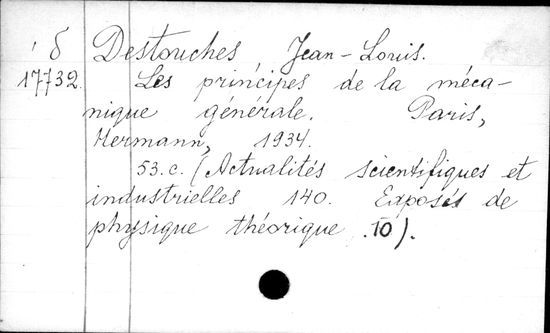 δ Destouches Jean-Louis.
17732 Les principes de la méca-
nique générale. Paris,
Hermann, 1934.
53.c. (Actualités scientifiques et
industrielles 140. Exposés de
physique théorique .10).